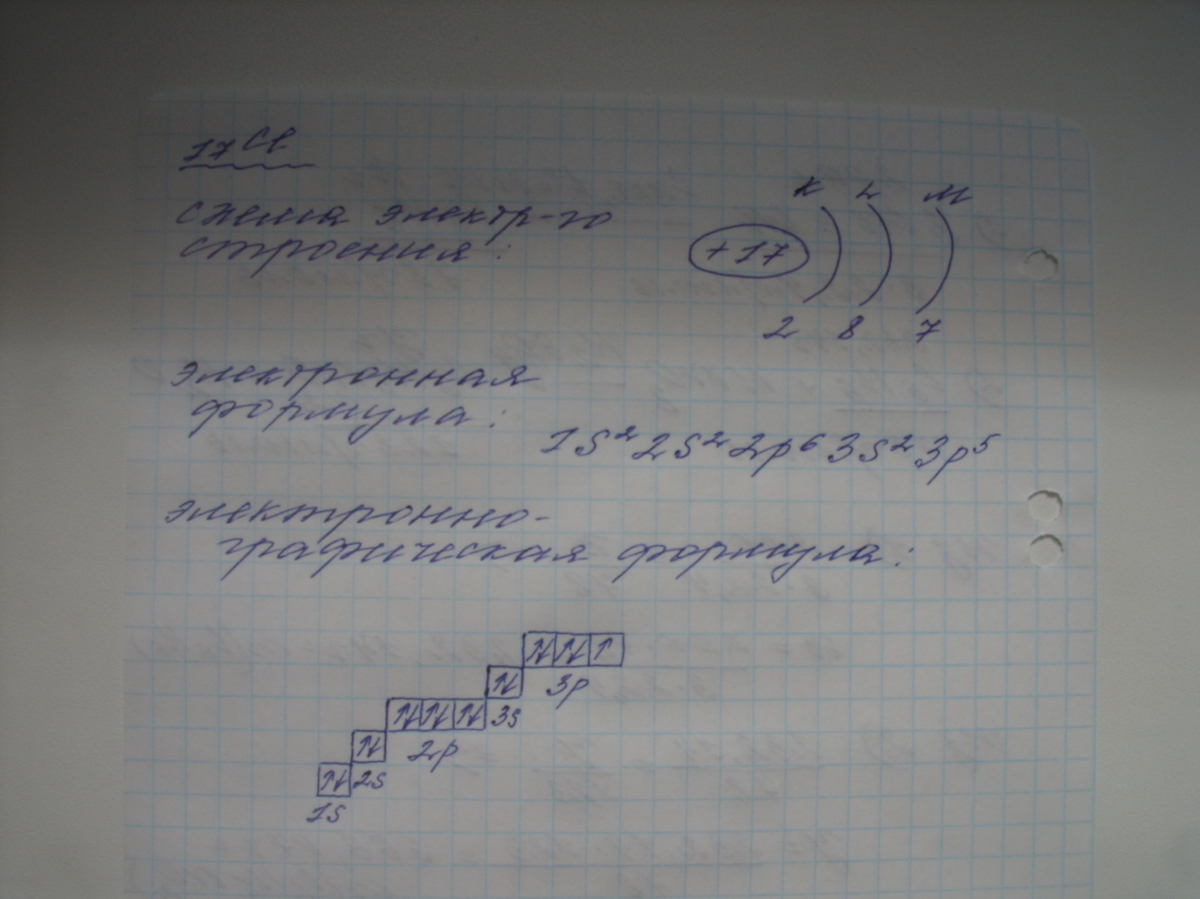 17Cl
схема электр-го K L M
строения: +17
2 8 7
электронная
формула:
1s² 2s² 2p⁶ 3s² 3p⁵
электронно-
графическая формула:
↑↓ ↑↓ ↑
↑↓ 3p
↑↓ ↑↓ ↑↓ 3s
↑↓ 2p
↑↓ 2s
1s